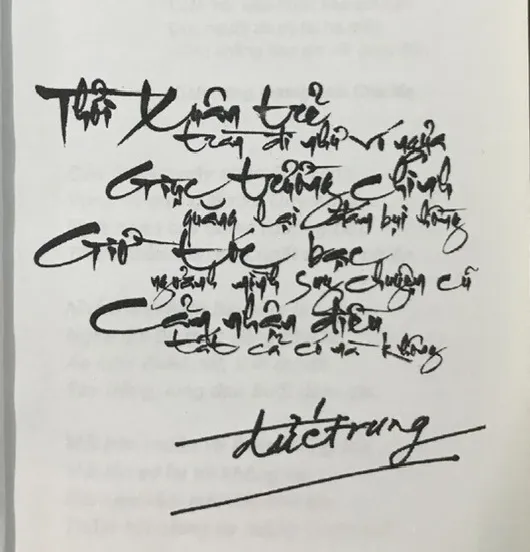 Thời Xuân trẻ
tran đi như vó ngựa
Giục trường chinh
quăng lại đám bụi hồng
Giờ tóc bạc
ngoảnh nình suy chuyện cũ
Cảm nhân điều
tất cả có mà không
đức trung